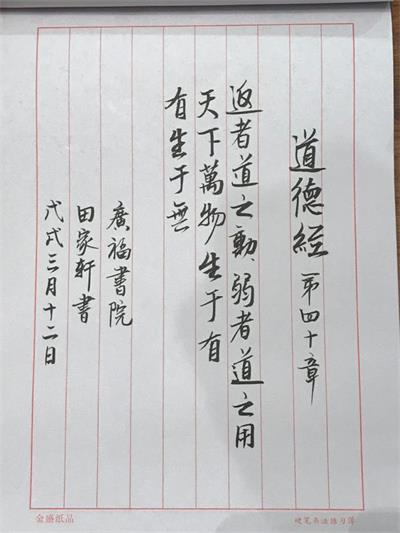 道德經 第四十章
返者道之動、弱者道之用
天下萬物生于有
有生于無
廣福書院
田家轩書
戊戌三月十二日
金盛纸品
硬笔书法练习簿